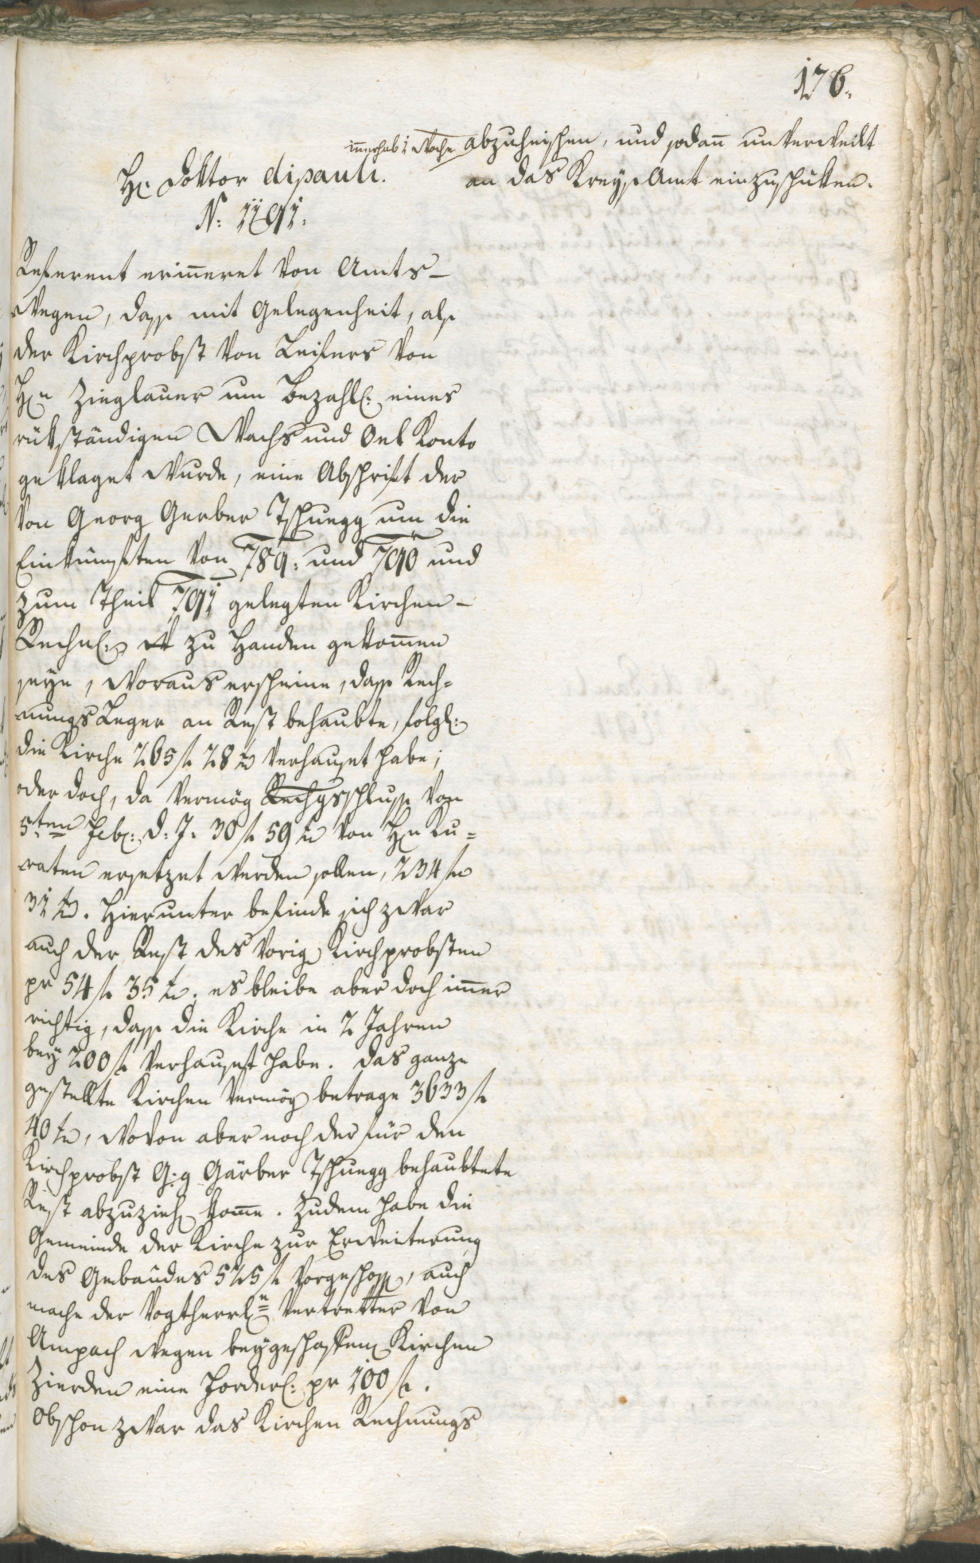 176.
innerhalb 1 Woche abzuheischen, und sodañ unverweilt
an das Kreys Amt einzuschicken.
H: Doktor dipauli.
N: 1191.
Referent eriñeret von Amts-
Wegen, dass mit Gelegenheit, als
der Kirchprobst von Leifers von
H:n Zieglauer um Bezahl: eines
rükständigen Wachs und Oel Konto
geklaget wurde, eine Abschrift der
von Georg Gerber Tschuegg um die
Einkünften von 789: und 790 und
zum Theil 791 gelegten Kirchen-
Rechn: zu Handen gekom̃en
seye, woraus erscheine, dass Rech-
nungs Leger an Rest behaubte, folgl:
die Kirche 265 f 28 x verhauset habe;
oder doch, da vermög Rechgsschluss von
5:ten Feb: d: J. 30 f 59 x von H:n Ku-
raten ersetzet werden sollen, 234 f
31 x. Hierunter befinde sich zwar
auch der Rest des vorig Kirchprobsten
pr 54 f 35 x; es bleibe aber doch im̃er
richtig, dass die Kirche in 2 Jahren
bey 200 f verhauset habe. Das ganze
gestellte Kirchen Vermög betrage 3633 f
40 x, wovon aber noch der für den
Kirchprobst G:g Gärber Tschuegg behaubtete
Rest abzuzieh kom̃e. Zudem habe die
Gemeinde der Kirche zur Erweiterung
des Gebäudes 525 f vorgeschoss, auch
mache der Vogtherrl:n Vertretter von
Ampach wegen beygeschaften Kirchen
Zierden eine Forder: pr 100 f.
Obschon zwar das Kirchen Rechnungs